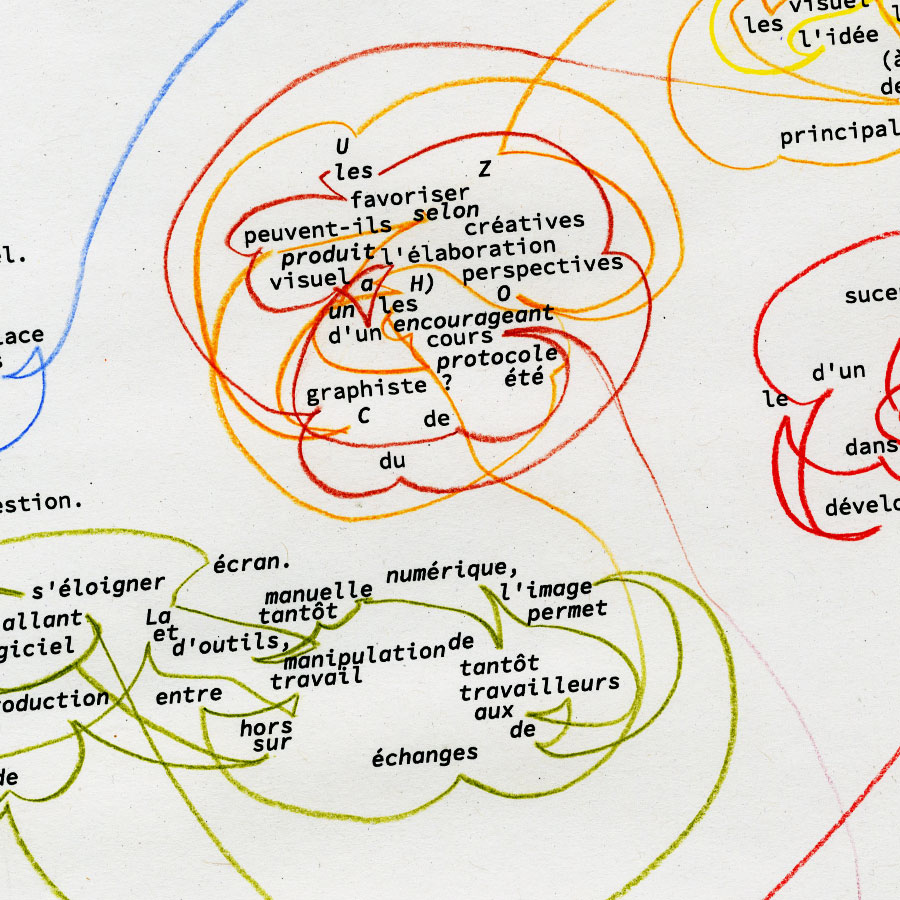 visuel
les
l'idée
(à
de
principal
U
les
Z
favoriser
selon
peuvent-ils
créatives
produit
l'élaboration
visuel
perspectives
a
H)
O
un
les
encourageant
d'un
cours
protocole
graphiste ?
été
C
de
du
el.
lace
s
estion.
sucer
d'un
le
dans
dévelo
écran.
numérique,
s'éloigner
manuelle
l'image
allant
La
tantôt
permet
et
giciel
d'outils,
manipulation
de
travail
tantôt
oduction
entre
travailleurs
aux
hors
de
sur
échanges
de